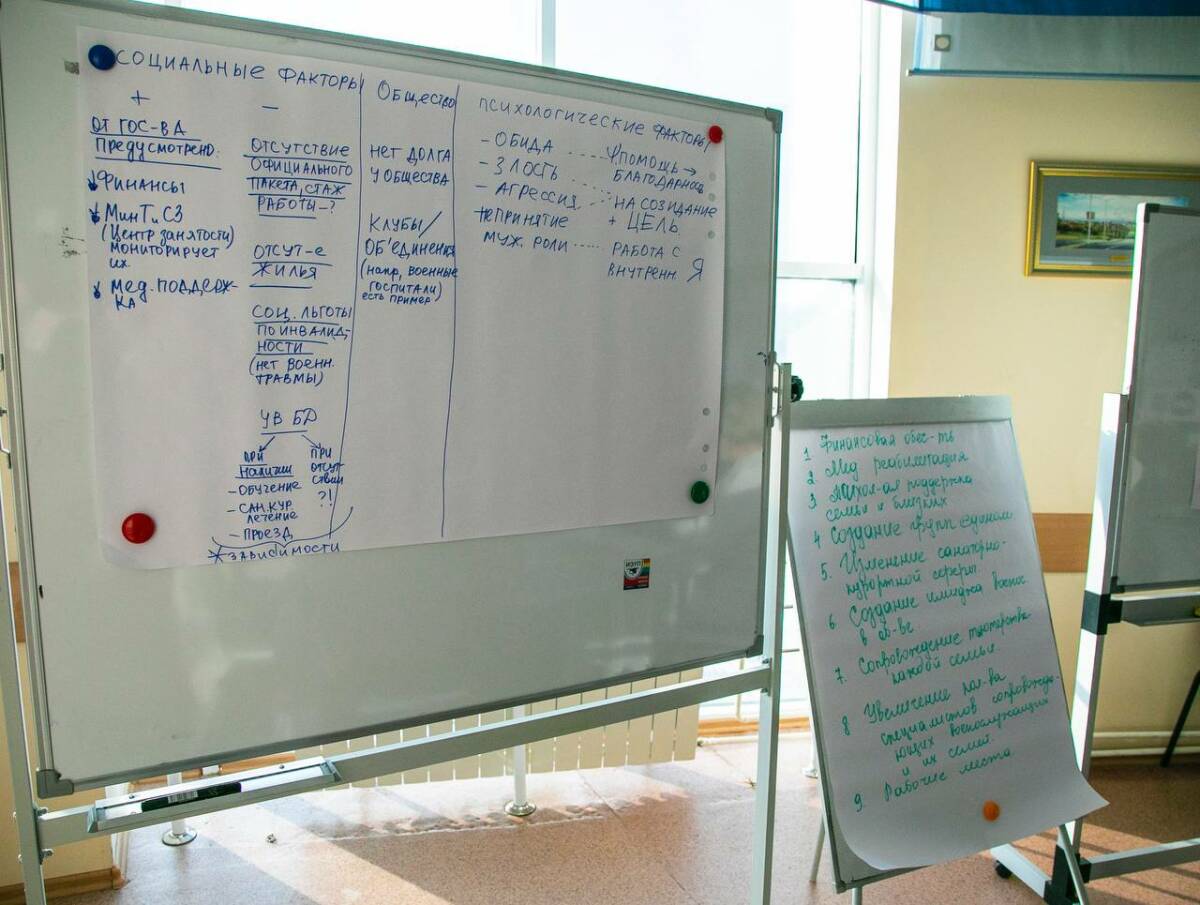 СОЦИАЛЬНЫЕ ФАКТОРЫ
+
ОТ ГОС-ВА
ПРЕДУСМОТРЕНО.
ФИНАНСЫ
МинТиСЗ
(Центр занятости)
мониторирует
их
МЕД. ПОДДЕРЖ-
КА
–
ОТСУТСТВИЕ
ОФИЦИАЛЬНОГО
ПАКЕТА, СТАЖ
РАБОТЫ-?
ОТСУТ-Е
ЖИЛЬЯ
СОЦ. ЛЬГОТЫ
ПО ИНВАЛИД-
НОСТИ
(НЕТ ВОЕНН.
ТРАВМЫ)
УВ БД
ПРИ
НАЛИЧИИ
– ОБУЧЕНИЕ
– САН.КУР
ЛЕЧЕНИЕ
– ПРОЕЗД
ПРИ
ОТСУТ-
СТВИИ
?!
ЗАВИСИМОСТИ
ОБЩЕСТВО
НЕТ ДОЛГА
У ОБЩЕСТВА
КЛУБЫ/
ОБ'ЕДИНЕНИЯ
(напр, ВОЕННЫЕ
ГОСПИТАЛИ)
есть пример
ПСИХОЛОГИЧЕСКИЕ ФАКТОРЫ
– ОБИДА ..... ПОМОЩЬ →
БЛАГОДАРНОСТЬ
– ЗЛОСТЬ .....
– АГРЕССИЯ ... НА СОЗИДАНИЕ
+ ЦЕЛЬ
НЕПРИНЯТИЕ
МУЖ. РОЛИ ..... РАБОТА С
ВНУТРЕНН. Я
1 Финансовая обес-ть
2. Мед реабилитация
3 Психол-ая поддержка
семьи и близких
4 Создание групп едином
5. Изменение санаторно-
курортной сферы.
6. Создание имиджа военос.
в об-ве.
7. Сопровождение
каждой семьи.
8 Увеличение кол-ва
специалистов сопровожда-
ющих военослужащих
и их семей
9. Рабочие места